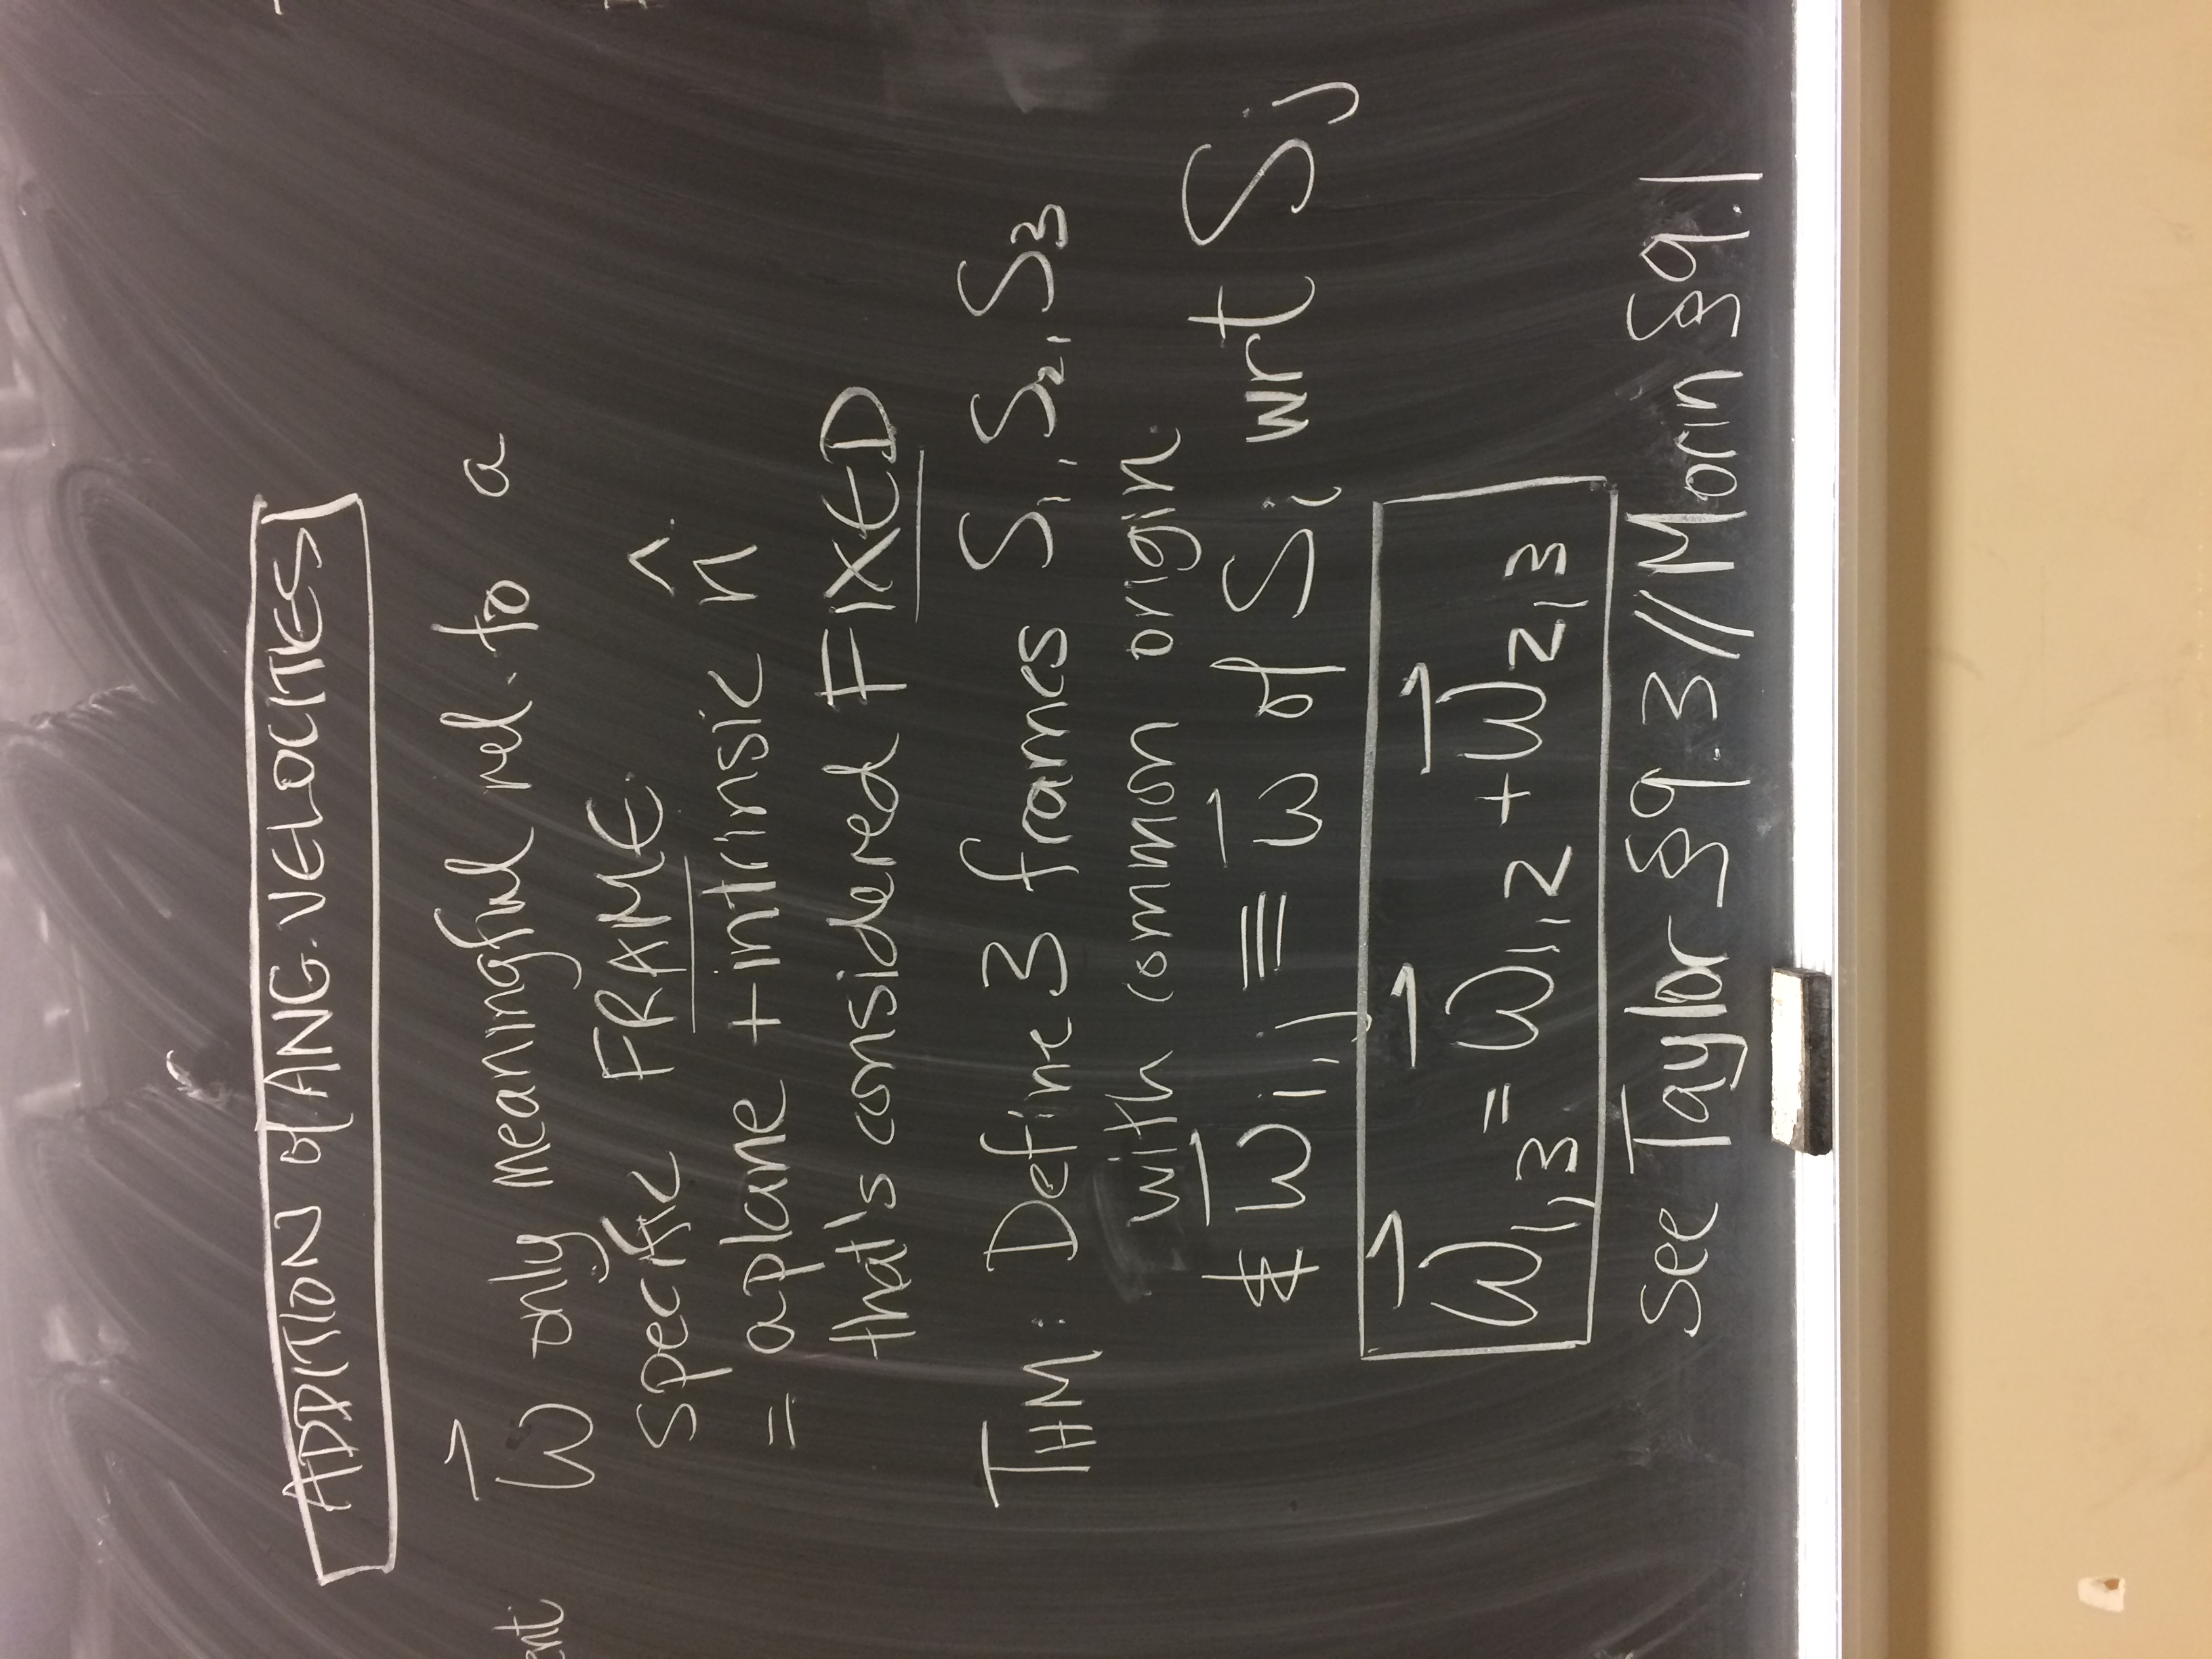 ADDITION of ANG. VELOCITIES
ω⃗ only meaningful rel. to a
specific FRAME.
= a plane + intrinsic n̂
that's considered FIXED
THM: Define 3 frames S₁, S₂, S₃
with common origin.
& ω⃗ᵢ,ⱼ ≡ ω⃗ of Sᵢ wrt Sⱼ
ω⃗₁,₃ = ω⃗₁,₂ + ω⃗₂,₃
see Taylor §9.3 // Morin §9.1